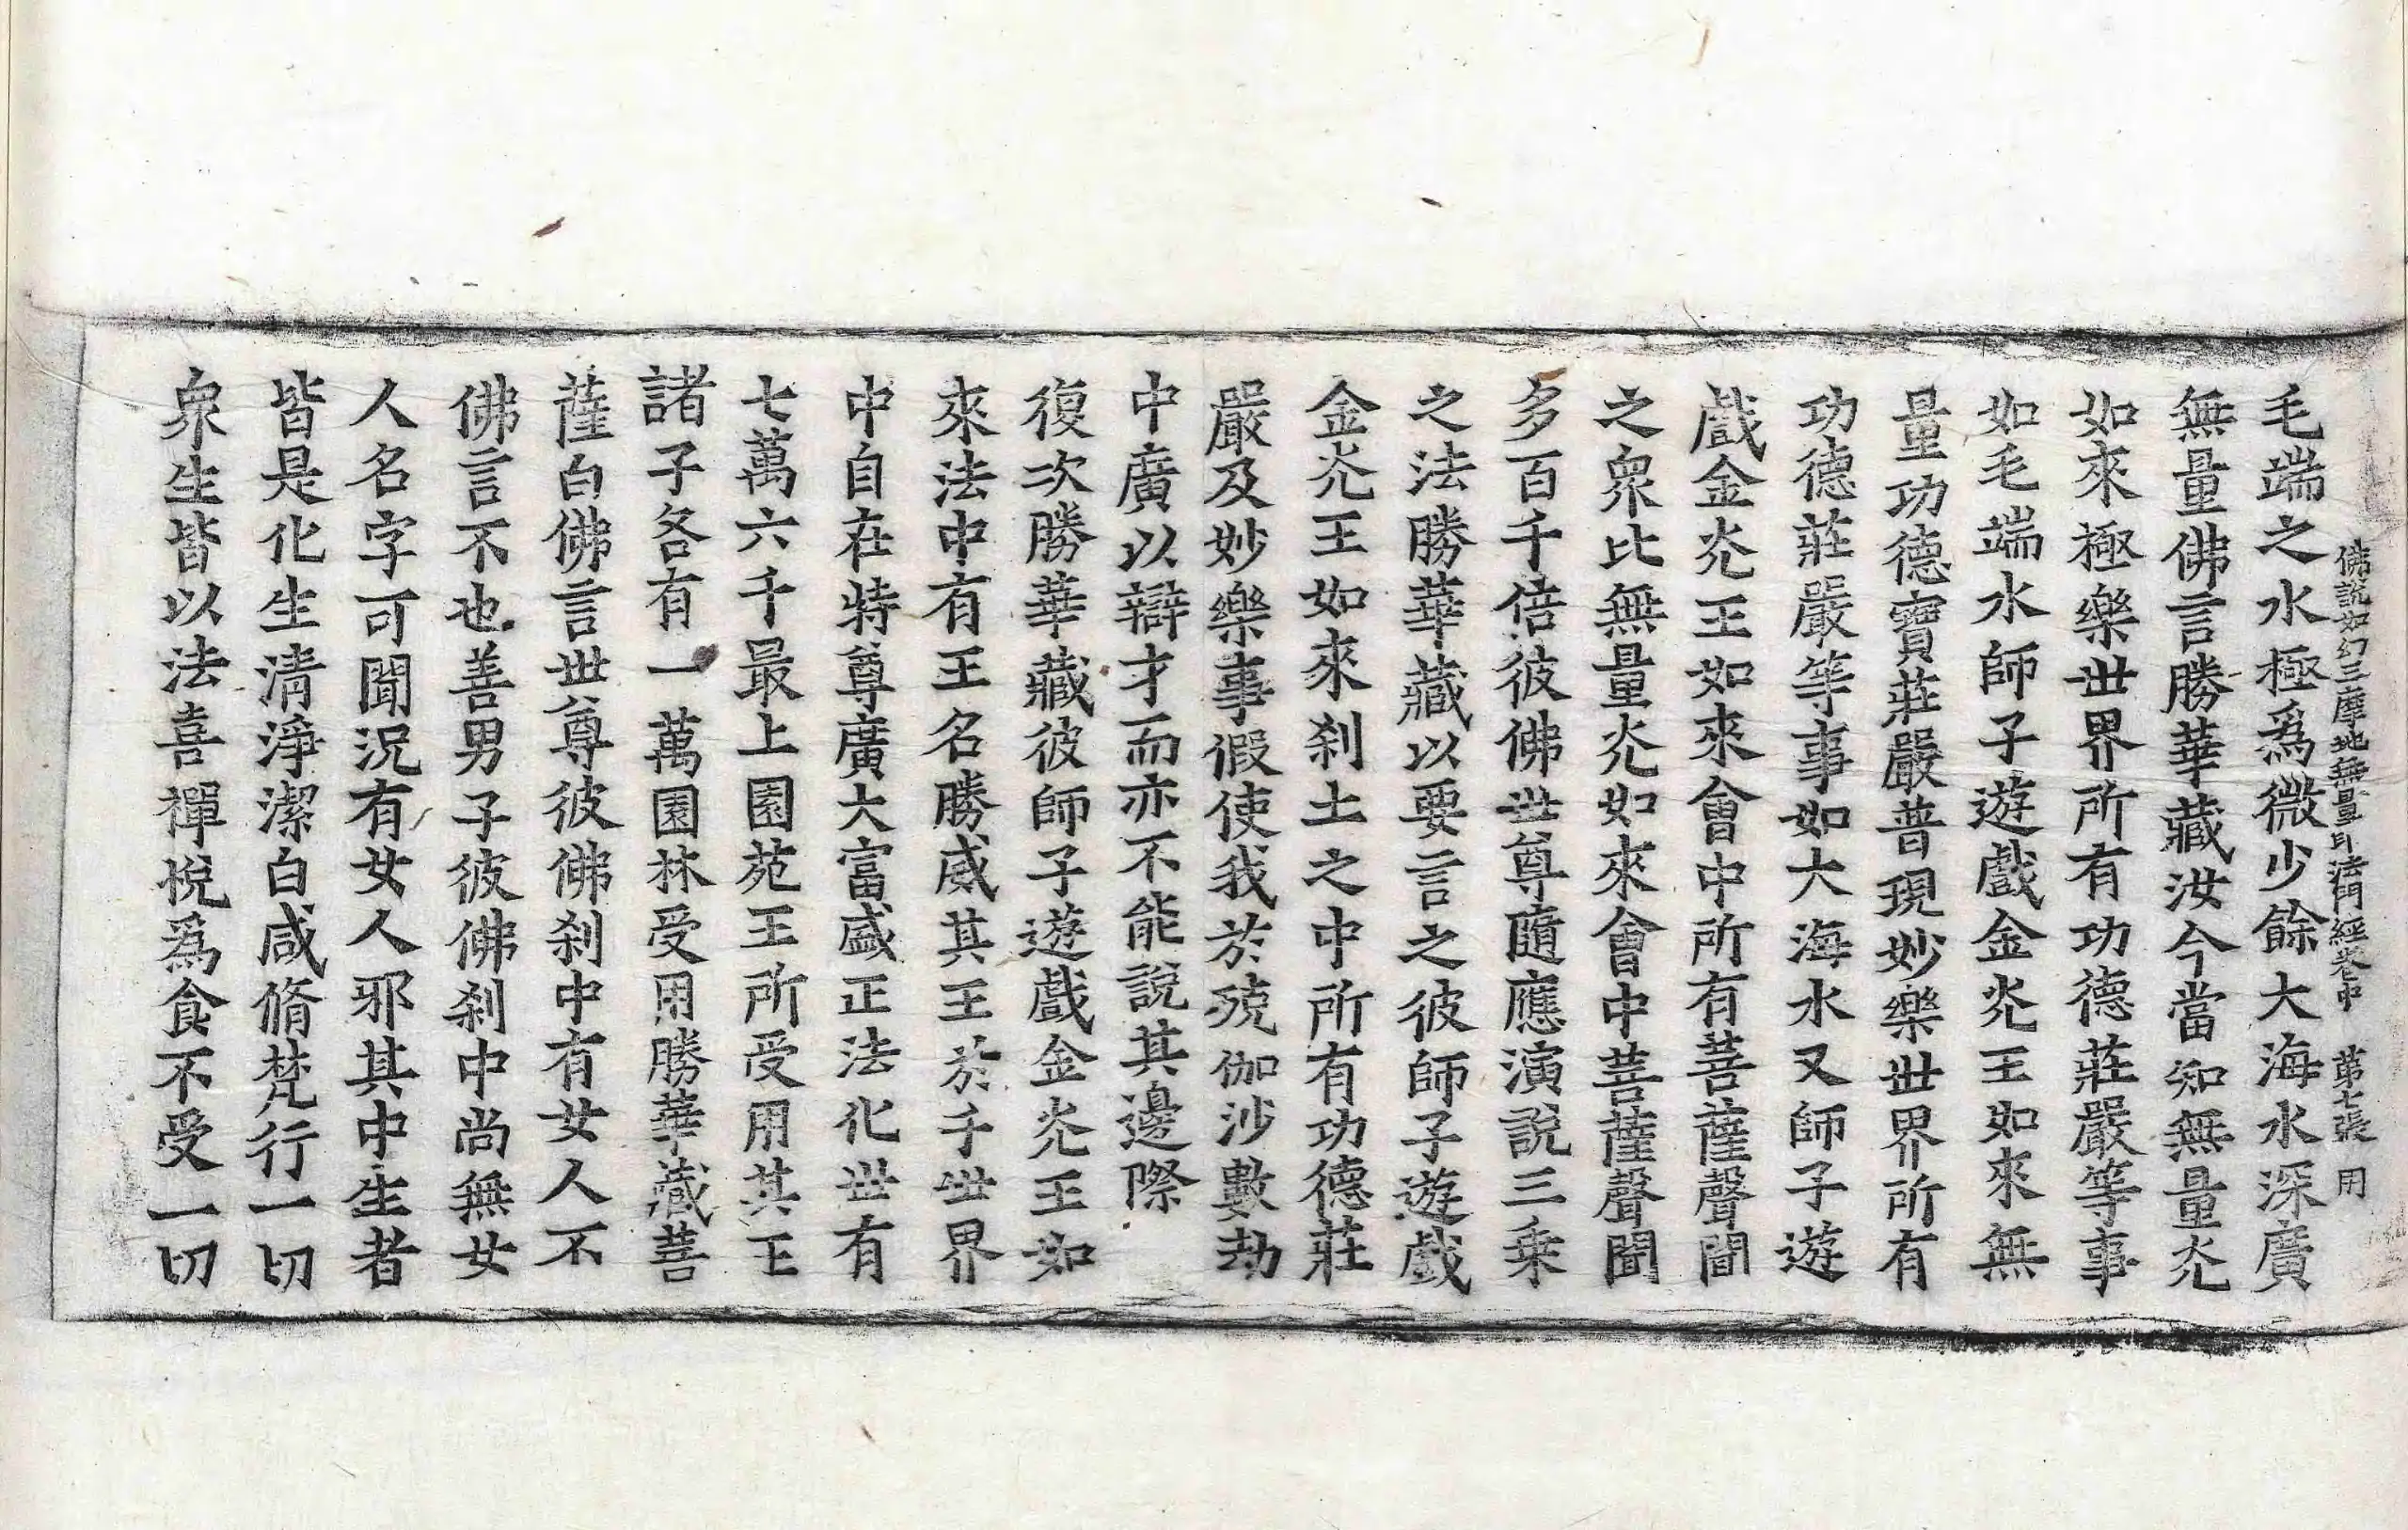 佛說如幻三摩地無量印法門經卷中　第七張　用
毛端之水極爲微少餘大海水深廣
無量佛言勝華藏汝今當知無量光
如來極樂世界所有功德莊嚴等事
如毛端水師子遊戲金光王如來無
量功德寶莊嚴普現妙樂世界所有
功德莊嚴等事如大海水又師子遊
戲金光王如來會中所有菩薩聲聞
之衆比無量光如來會中菩薩聲聞
多百千倍彼佛世尊隨應演說三乘
之法勝華藏以要言之彼師子遊戲
金光王如來刹土之中所有功德莊
嚴及妙樂事假使我於殑伽沙數劫
中廣以辯才而亦不能說其邊際
復次勝華藏彼師子遊戲金光王如
來法中有王名勝威其王於千世界
中自在特尊廣大富盛正法化世有
七萬六千最上園苑王所受用其王
諸子各有一萬園林受用勝華藏菩
薩白佛言世尊彼佛刹中有女人不
佛言不也善男子彼佛刹中尚無女
人名字可聞況有女人邪其中生者
皆是化生清淨潔白咸脩梵行一切
衆生皆以法喜禪悅爲食不受一切